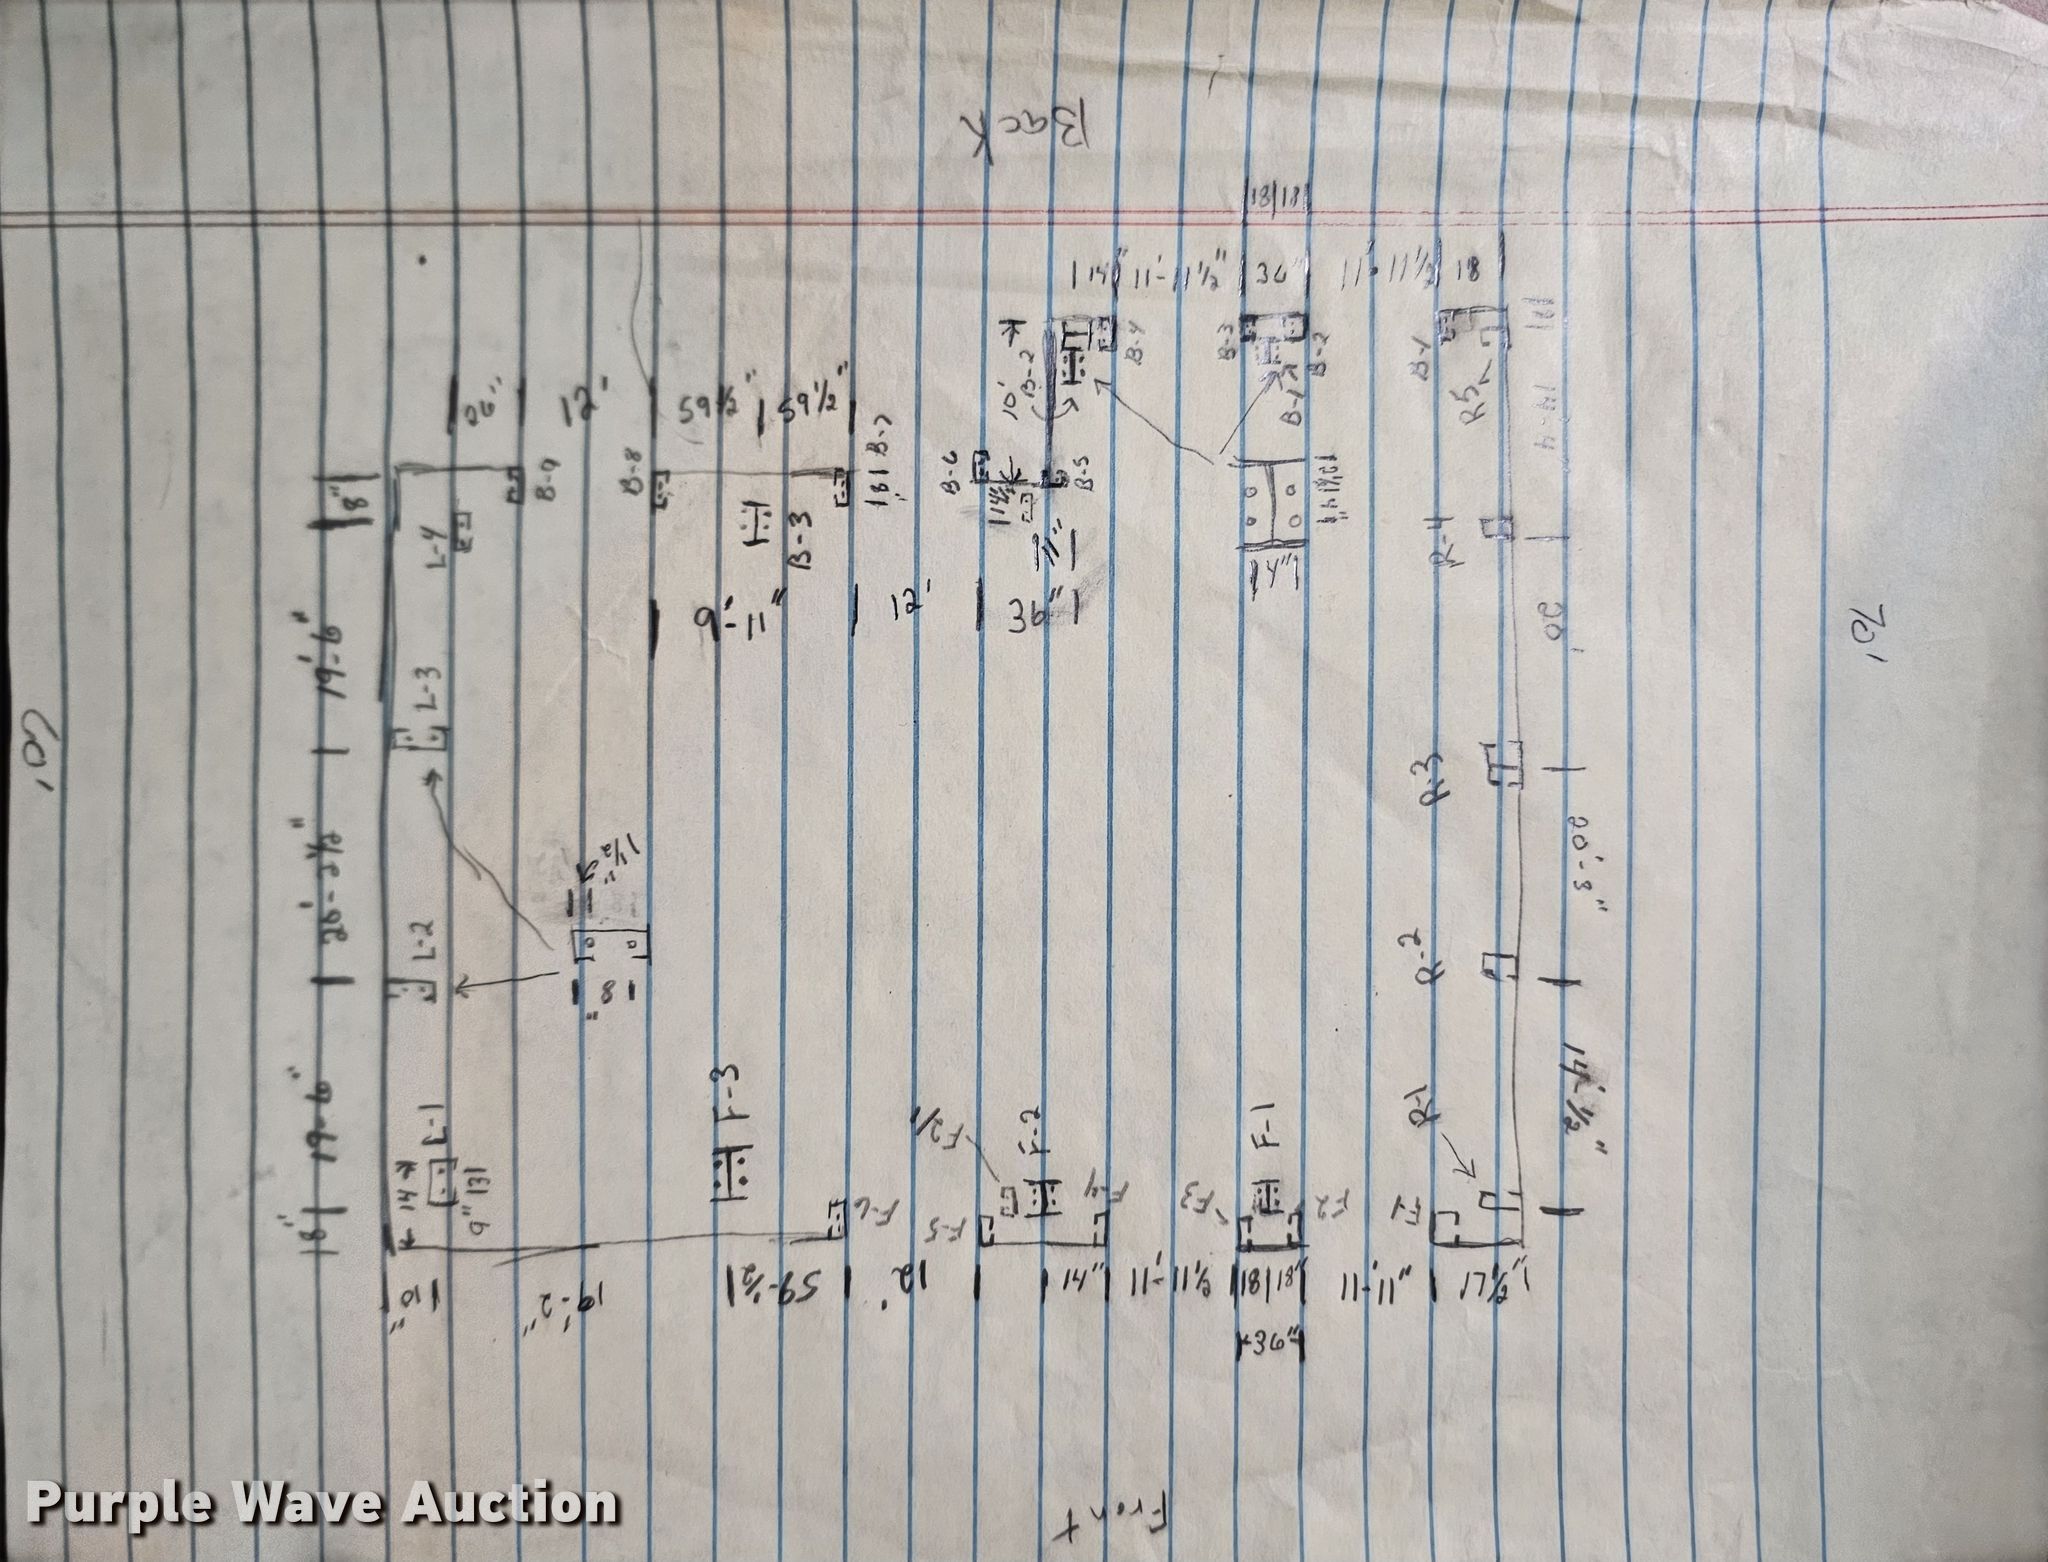 Back
18|18
14" 11'-11½" 36" 11'-11½ 18
B-4
B-3
B-2
B-1
R5
10'
B-2
B-1
12'
59½"
59½"
B-9
B-8
B-7
18"
B-6
B-5
L-4
B-3
14"
11"
R-4
14-4
9'-11"
12'
36"
20'
70'
60'
19'-6"
L-3
R-3
1½"
20'-3"
L-2
8"
R-2
19'-6"
L-1
14
9"
F-3
F2½
F-2
F-1
R-1
14'-½"
18"
F-6
F-5
F-4
F3
F2
F1
10"
19'-2"
59-½
12'
14"
11'-11½
18|18"
11'-11"
17½"
36"
Front
Purple Wave Auction